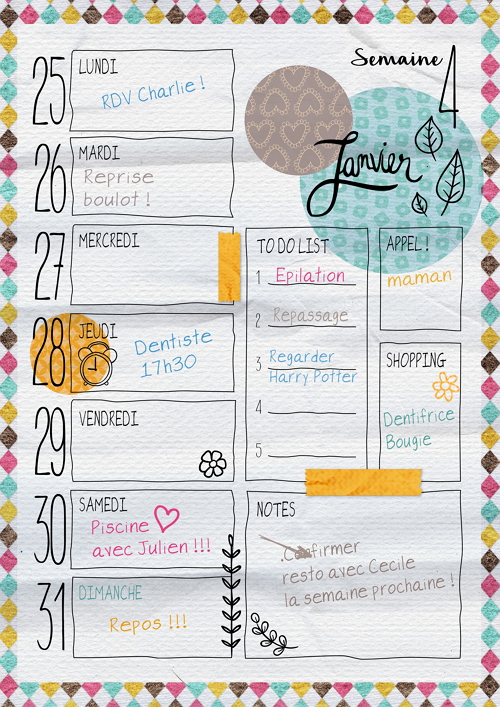 Semaine 4
Janvier
25 LUNDI
RDV Charlie !
26 MARDI
Reprise
boulot !
27 MERCREDI
28 JEUDI
Dentiste
17h30
29 VENDREDI
30 SAMEDI
Piscine
avec Julien !!!
31 DIMANCHE
Repos !!!
TO DO LIST
1 Epilation
2 Repassage
3 Regarder
Harry Potter
4
5
APPEL !
maman
SHOPPING
Dentifrice
Bougie
NOTES
Confirmer
resto avec Cecile
la semaine prochaine !